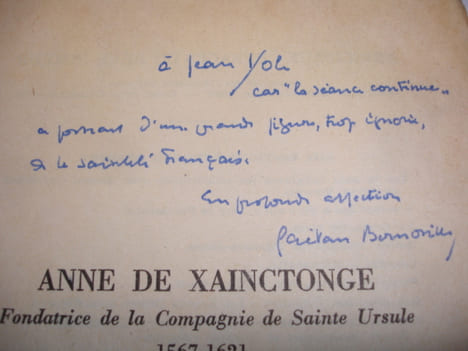 à Jean Yole
car "la séance continue"
ce portrait d'une grande figure, trop ignorée,
de la sainteté française.
En profonde affection
Gaëtan Bernoville
ANNE DE XAINCTONGE
Fondatrice de la Compagnie de Sainte Ursule
1567-1621